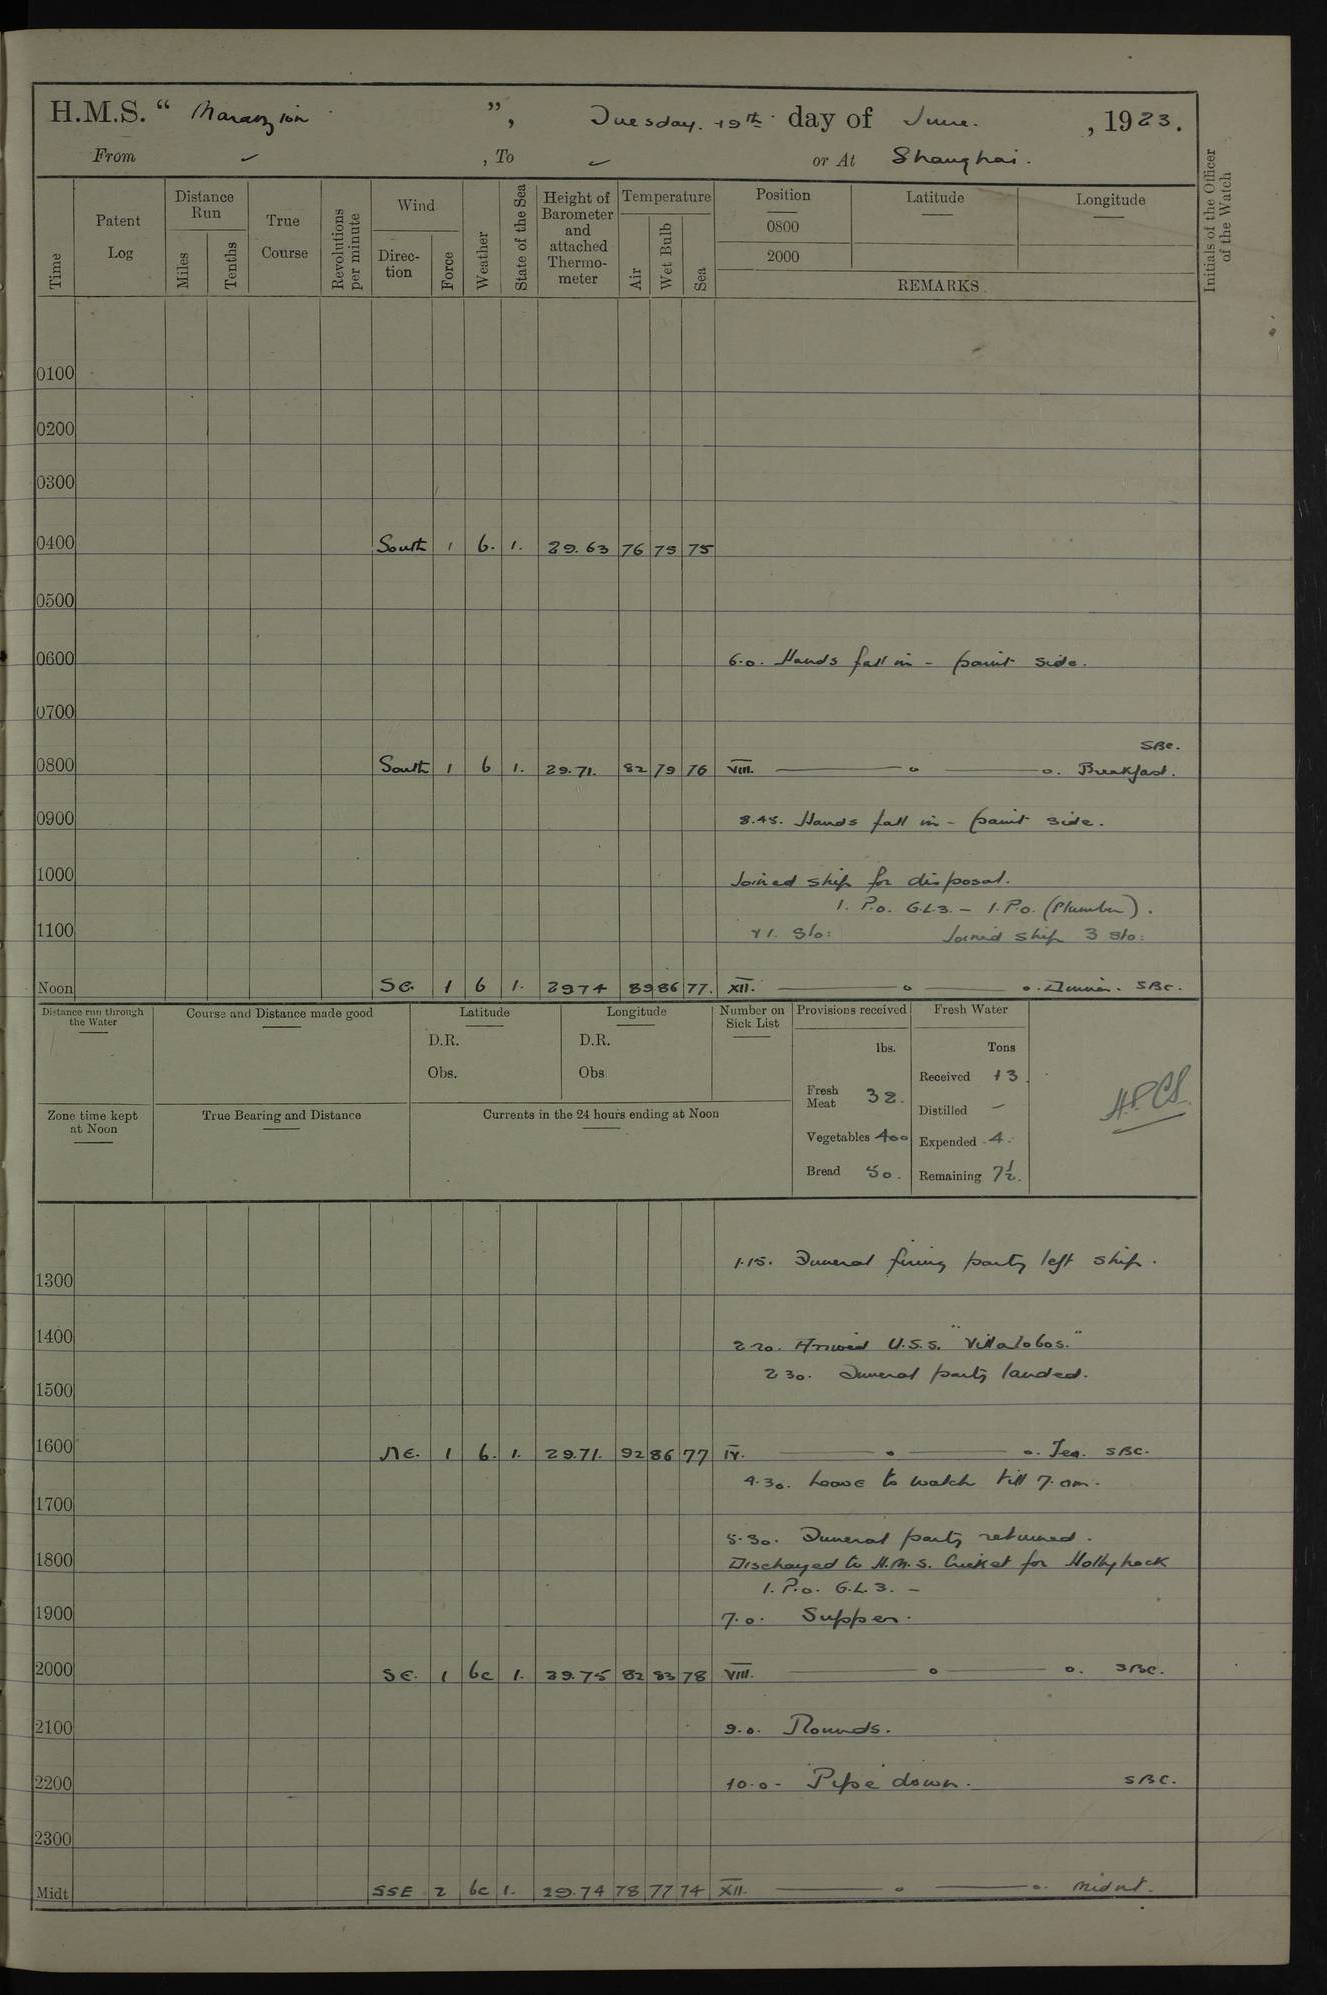 H.M.S. “ Marazion ”, Tuesday. 19th day of June. , 1923.
From ✓ , To ✓ or At Shanghai.
Time
Patent Log
Distance Run
Miles
Tenths
True Course
Revolutions per minute
Wind
Direc-tion
Force
Weather
State of the Sea
Height of Barometer and attached Thermo-meter
Temperature
Air
Wet Bulb
Sea
Position
0800
2000
Latitude
Longitude
REMARKS
Initials of the Officer of the Watch
0100
0200
0300
0400 South 1 b. 1. 29.63 76 75 75
0500
0600 6.0. Hands fall in - paint side.
0700
SBC.
0800 South 1 b 1. 29.71. 82 79 76 VIII. o o. Breakfast.
0900 8.45. Hands fall in - paint side.
1000 Joined ship for disposal.
1. P.o. G.L3. - 1. P.o. (Plumber).
1100 Joined ship 3 Sto:
Noon SE. 1 b 1. 2974 89 86 77. XII. o o. Dinner. SBC.
Distance run through the Water
Course and Distance made good
Latitude
D.R.
Obs.
Longitude
D.R.
Obs
Number on Sick List
Provisions received
lbs.
Fresh Meat 32.
Vegetables 400
Bread 50.
Fresh Water
Tons
Received 13.
Distilled -
Expended 4.
Remaining 7½.
Zone time kept at Noon
True Bearing and Distance
Currents in the 24 hours ending at Noon
1300 1.15. Funeral firing party left ship.
1400 2.20. Arrived U.S.S. "Villalobos."
2 30. Funeral party landed.
1500
1600 NE. 1 b. 1. 29.71. 92 86 77 IV. o o. Tea. SBC.
4.30. Leave to watch till 7. am.
1700
5.30. Funeral party returned.
1800 Discharged to H.M.S. Cricket for Hollyhock
1. P.o. G.L.3. -
1900 7.0. Supper.
2000 SE. 1 bc 1. 29.75 82 83 78 VIII. o o. SBC.
2100 9.0. Rounds.
2200 10.0- "Pipe down. SBC.
2300
Midt SSE 2 bc 1. 29.74 78 77 74 XII. o o. Midnt.